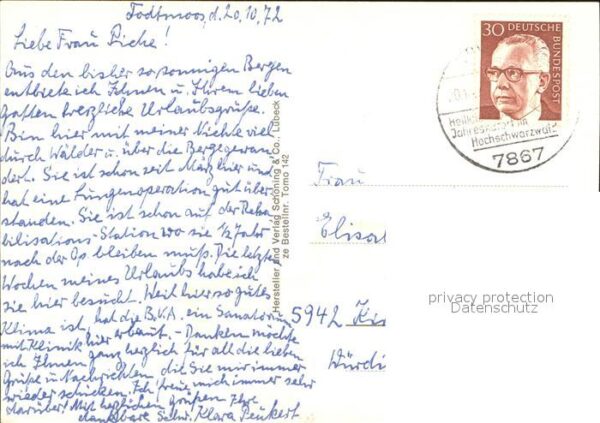 Todtmoos, d. 20.10.72
Liebe Frau Piche!
Aus den bisher so sonnigen Bergen
entbiete ich Ihnen u. Ihrem lieben
Gatten herzliche Urlaubsgrüße.
Bin hier mit meiner Nichte viel
durch Wälder u. über die Berge gewan
dert. Sie ist schon seit März hier und
hat eine Lungenoperation gut über
standen. Sie ist schon auf der Reha
bilisations-Station wo sie ½ Jahr
nach der Op bleiben muß. Die letzte
Wochen meines Urlaubs habe ich
sie hier besucht. Weil hier so gutes
Klima ist, hat die B.V.A. ein Sanatoriu
mit Klinik hier erbaut. - Danken möchte
ich Ihnen ganz herzlich für all die lieben
Grüße u. Nachrichten, die Sie mir immer
wieder schicken. Ich freue mich immer sehr
darüber! Mit herzlichen Grüßen Ihre
dankbare Schw. Klara Peukert
Hersteller und Verlag Schöning & Co., Lübeck
ze Bestellnr. Tomo 142
30 DEUTSCHE BUNDESPOST
Jahreskurort im
Hochschwarzwald
7867
Frau
Elisa
5942 Ki
Würdi
privacy protection
Datenschutz